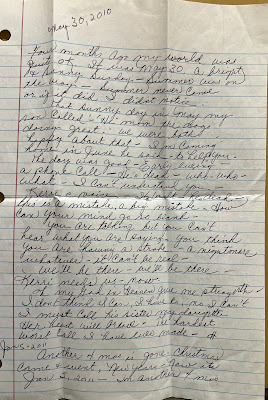 May 30, 2010
Four months ago my world was
quiet. It was May 30. A bright
Sunny Sunday - Summer was on
the way - Summer never came
or if it did I didn't notice.
This sunny day in May my
son called - "Hi mom the dogs
doing great - we were both
happy about that - I'm coming
home in June he said - to help you.
The day was good - Early evening -
a phone call - He's dead - who - who -
what - I can't understand you -
Kerri a
this is a mistake, a big mistake - How
can your mind go so blank -
You are talking but you can't
hear what you are saying - you think
You are having a stroke - a nightmare
whatever - it can't be real -
we'll be there - we'll be there -
Kerri needs us - now.
O my God in Heaven give me strength -
I don't think I can, I have to - no I can't
I must call his sister my daughter
Her heart will break - The hardest
worst call I have ever made -
Jan 5-2011
Another 4 mos is gone. Christmas
came & went, New Years - now its
Jan 5-2011 - In another 4 mos